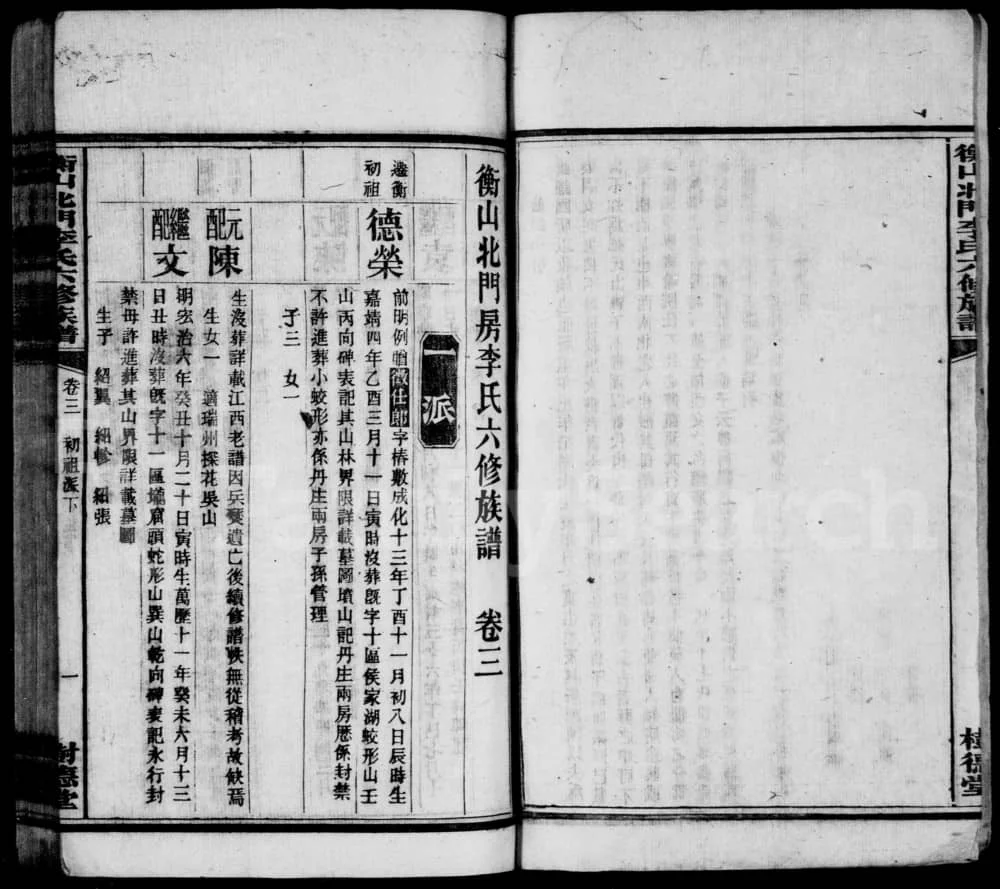 衡山北門李氏六修族譜
樹德堂
衡山北門房李氏六修族譜 卷三
一派
遷衡初祖
德榮
前明例贈徵仕郎字椿敷成化十三年丁酉十一月初八日辰時生
嘉靖四年乙酉三月十一日寅時沒葬旣字十區侯家湖蛟形山壬
山丙向碑表記其山林界限詳載墓圖墳山記丹生兩房歷係封禁
不許進葬小蛟形亦係丹生兩房子孫管理
子三 女一
元配
陳
生沒葬詳載江西老譜因兵燹遺亡後續修譜帙無從稽考故缺焉
生女一 適瑞州探花吳山
繼配
文
明宏治六年癸丑十月二十日寅時生萬歷十一年癸未六月十三
日丑時沒葬旣字十一區壚窟頭蛇形山巽山乾向碑表記永行封
禁毋許進葬其山界限詳載墓圖
生子 紹翼 紹軫 紹張
衡山北門李氏六修族譜
卷三 初祖派下
一
樹德堂